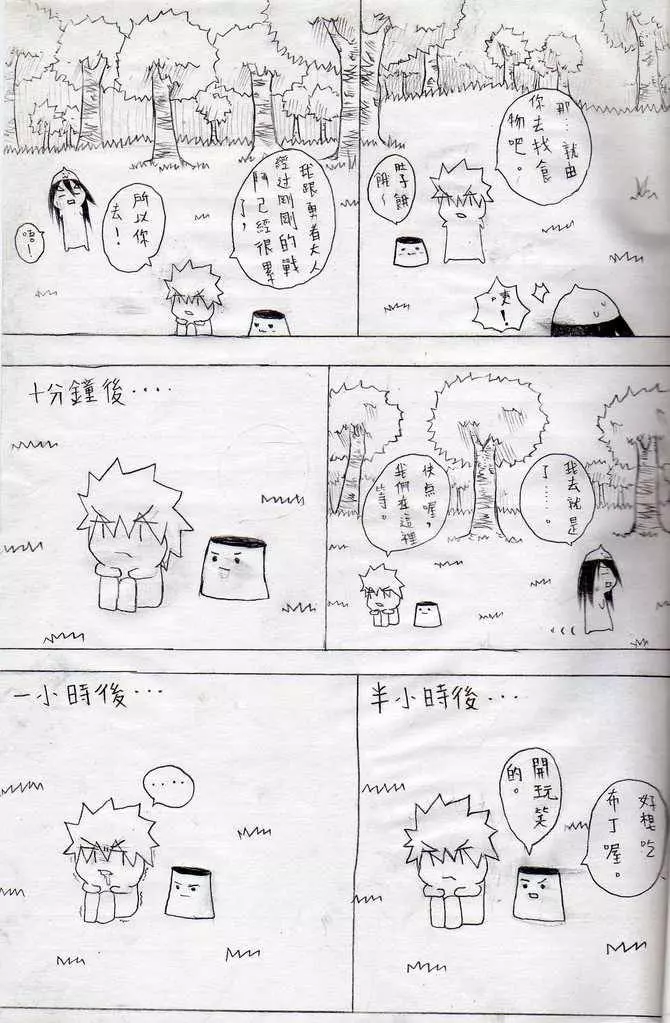 那...就由
你去找食
物吧。
肚子餓
餓~
咦!
我跟勇者大人
經过剛剛的戰
鬥已經很累
了,
所以你
去!
唔!
我去就是
了......。
快点喔,
我們在這裡
等。
十分鐘後....
半小時後...
好想吃
布丁喔。
開玩笑
的。
一小時後...
....